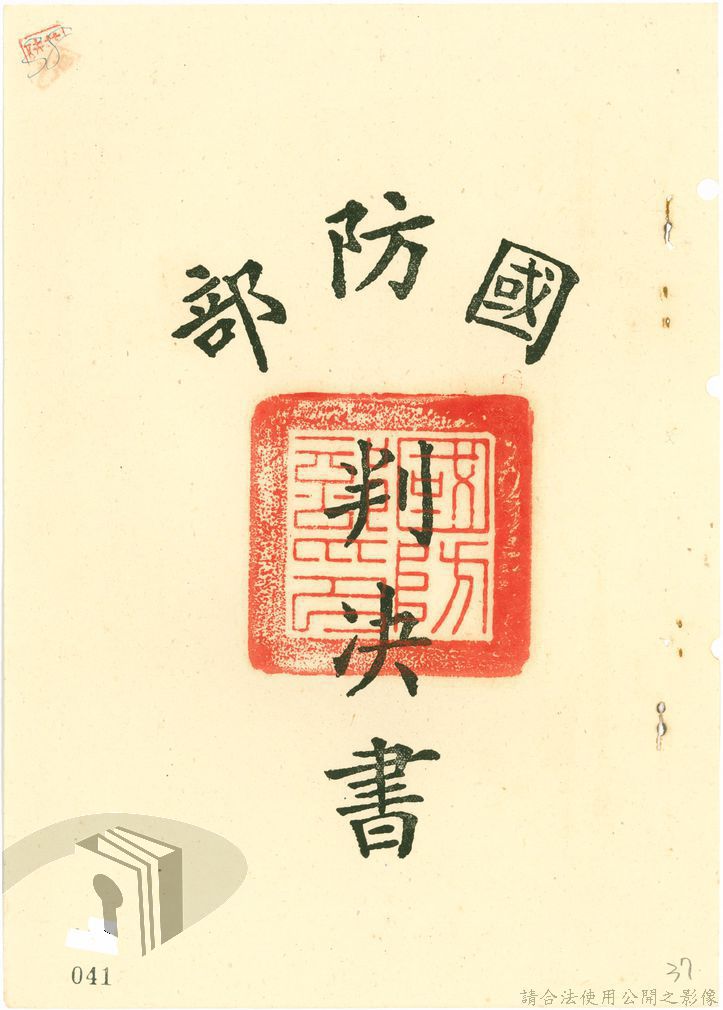 國防部
判決書
041
37
請合法使用公開之影像